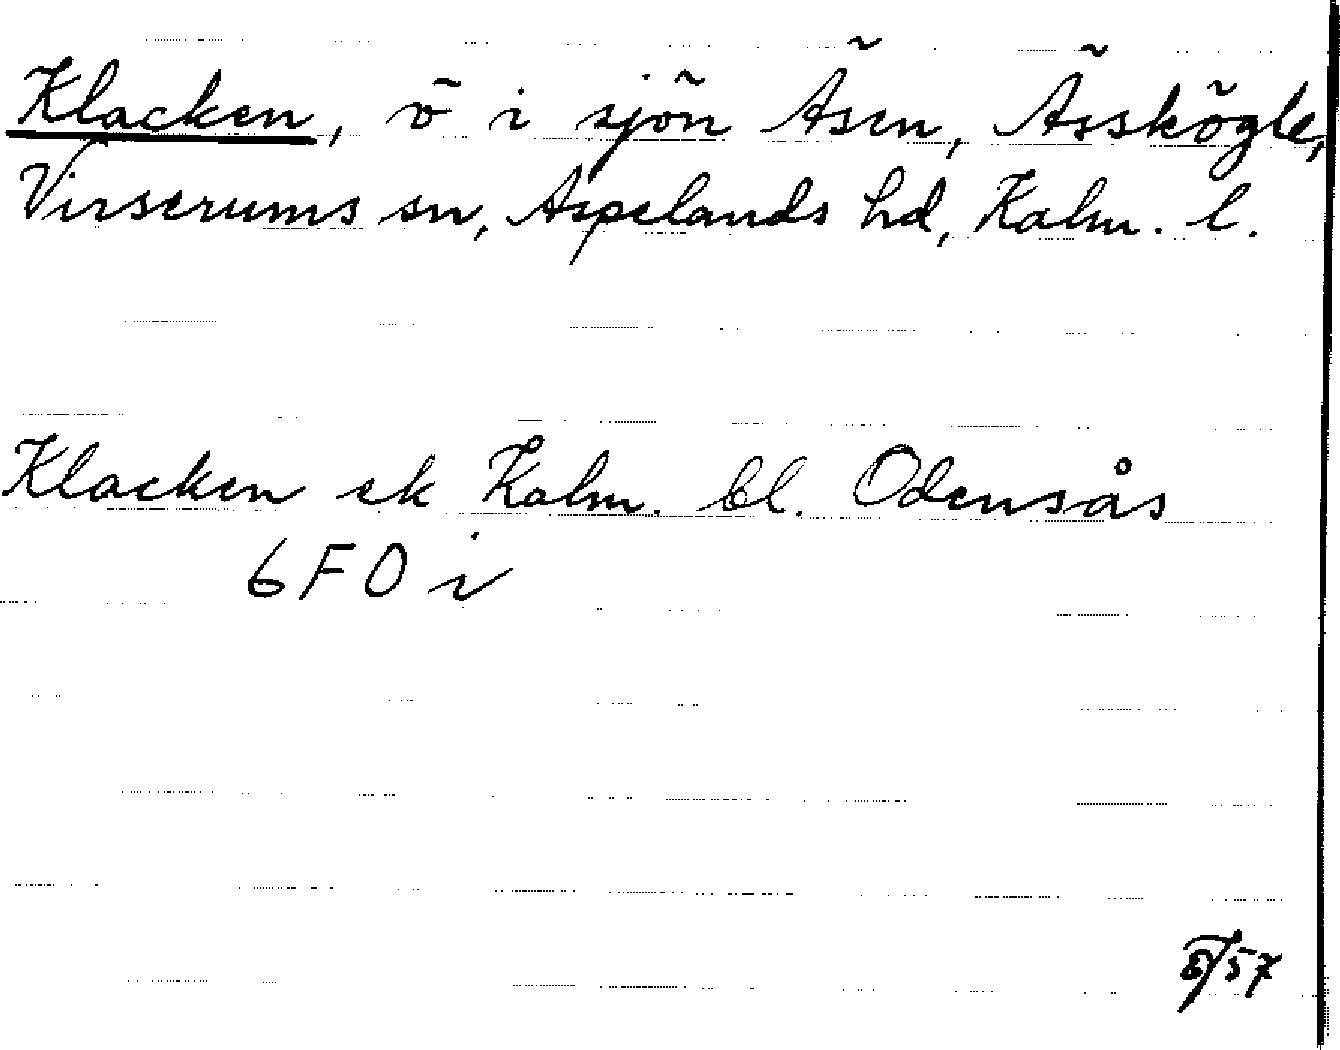 Klacken, ö i sjön Äsen, Ässkögle,
Virserums sn, Aspelands hd, Kalm. l.
Klacken ek Kalm. bl. Odensås
6 F 0 i